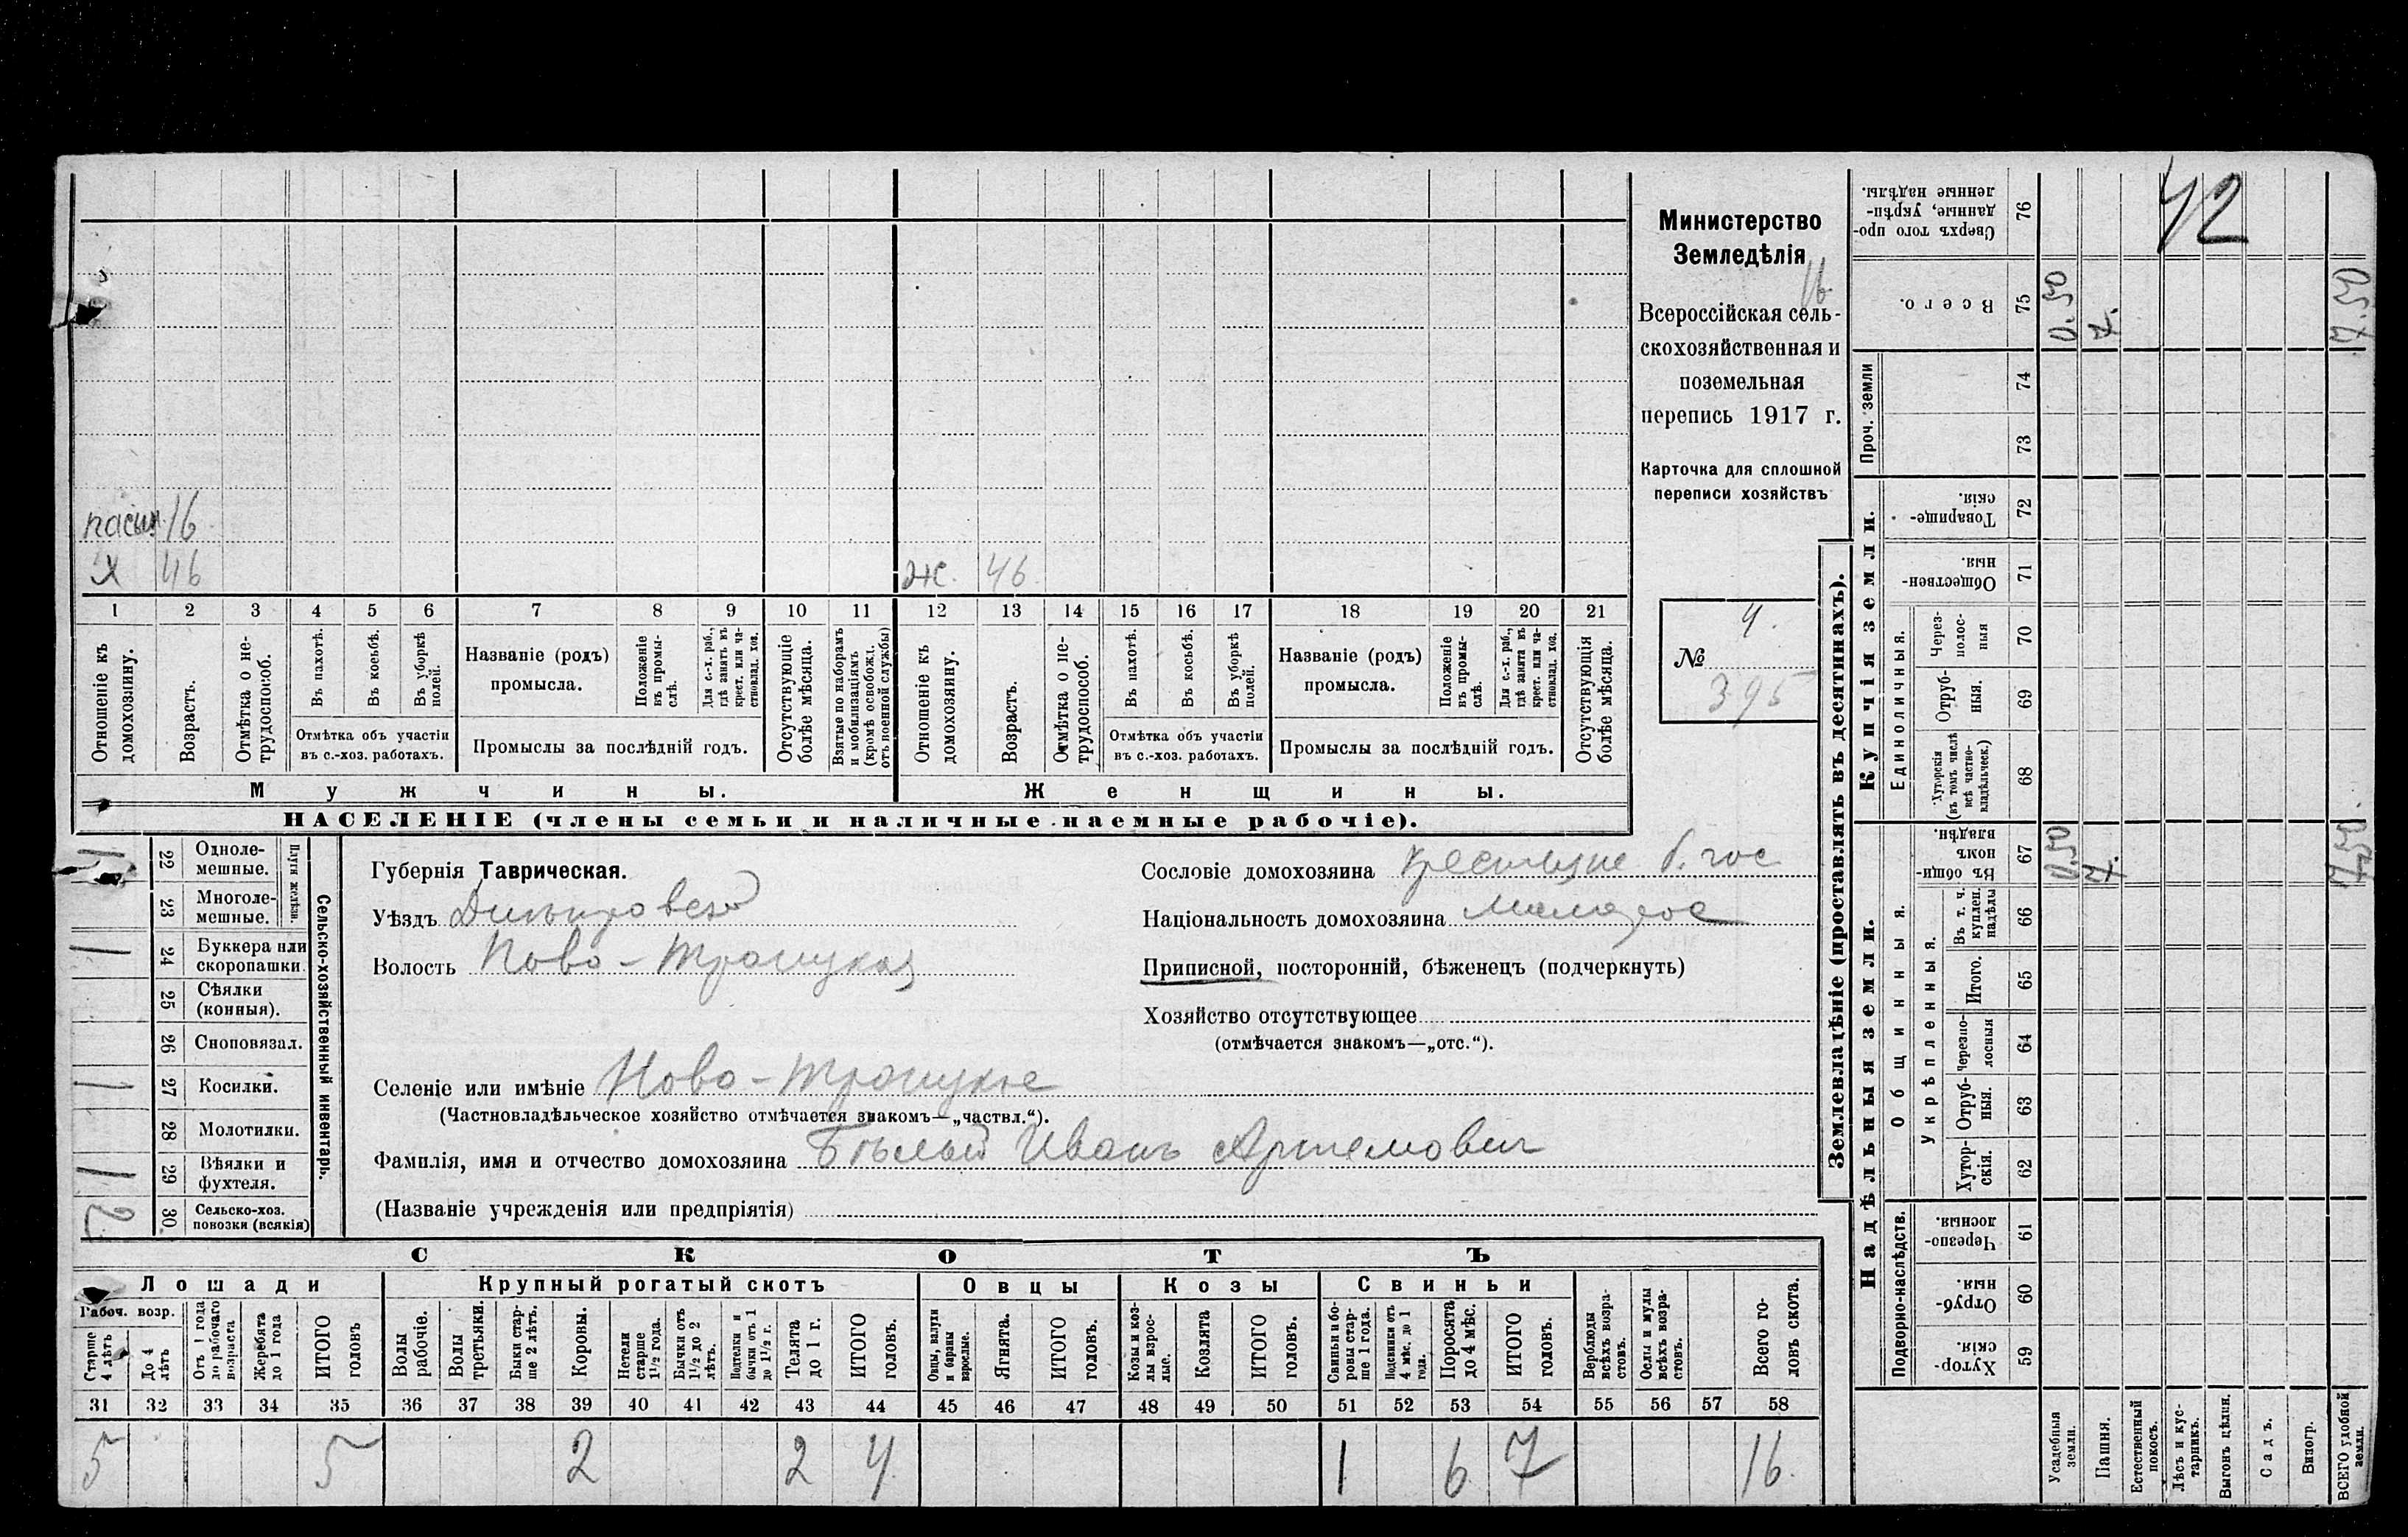 Министерство
Земледѣлія
16
Всероссійская сель-
скохозяйственная и
поземельная
перепись 1917 г.
Карточка для сплошной
переписи хозяйствъ
№ 4.
395
42
пасын. 16
х 46 ж. 46
1 2 3 4 5 6 7 8 9 10 11 12 13 14 15 16 17 18 19 20 21
Отношеніе къ домохозяину.
Возрастъ.
Отмѣтка о не-трудоспособ.
Въ пахотѣ.
Въ косьбѣ.
Въ уборкѣ полей.
Отмѣтка объ участіи
въ с.-хоз. работахъ.
Названіе (родъ)
промысла.
Положеніе въ промы-слѣ.
Для с.-х. раб., гдѣ занятъ въ крест. или ча-стновлад. хоз.
Промыслы за послѣдній годъ.
Отсутствующіе болѣе мѣсяца.
Взятые по наборамъ и мобилизаціямъ (кромѣ освобожд. отъ военной службы)
Отношеніе къ домохозяину.
Возрастъ.
Отмѣтка о не-трудоспособ.
Въ пахотѣ.
Въ косьбѣ.
Въ уборкѣ полей.
Отмѣтка объ участіи
въ с.-хоз. работахъ.
Названіе (родъ)
промысла.
Положеніе въ промы-слѣ.
Для с.-х. раб., гдѣ занята въ крест. или ча-стновлад. хоз.
Промыслы за послѣдній годъ.
Отсутствующія болѣе мѣсяца.
Мужчины.
Женщины.
НАСЕЛЕНІЕ (члены семьи и наличные наемные рабочіе).
Сельско-хозяйственный инвентарь.
Плуги желѣзн.
1 22 Одноле-мешные.
23 Многоле-мешные.
1 24 Буккера или скоропашки.
25 Сѣялки (конныя).
26 Сноповязал.
1 27 Косилки.
28 Молотилки.
1 29 Вѣялки и фухтеля.
2 30 Сельско-хоз. повозки (всякія)
Губернія Таврическая.
Уѣздъ Днѣпровскій
Волость Ново-Троицкая
Селеніе или имѣніе Ново-Троицкое
(Частновладѣльческое хозяйство отмѣчается знакомъ—„частвл.“).
Фамилія, имя и отчество домохозяина Бѣлый Иванъ Артемович
(Названіе учрежденія или предпріятія)
Сословіе домохозяина крестьяне б. гос
Національность домохозяина малорос
Приписной, посторонній, бѣженецъ (подчеркнуть)
Хозяйство отсутствующее
(отмѣчается знакомъ—„отс.“).
СКОТЪ
Лошади
Крупный рогатый скотъ
Овцы
Козы
Свиньи
Рабоч. возр.
Старше 4 лѣтъ
До 4 лѣтъ
Отъ 1 года до рабочаго возраста
Жеребята до 1 года
ИТОГО головъ
Волы рабочіе.
Волы третьяки.
Быки стар-ше 2 лѣтъ.
Коровы.
Нетели старше 1½ года.
Бычки отъ 1½ до 2 лѣтъ.
Подтелки и бычки отъ 1 до 1½ г.
Телята до 1 г.
ИТОГО головъ.
Овцы, валухи и бараны взрослые.
Ягнята.
ИТОГО головъ.
Козы и коз-лы взрос-лые.
Козлята
ИТОГО головъ.
Свиньи и бо-ровы стар-ше 1 года.
Подсвинки отъ 4 мѣс. до 1 года.
Поросята до 4 мѣс.
ИТОГО головъ.
Верблюды всѣхъ возра-стовъ.
Ослы и мулы всѣхъ возра-стовъ.
Всего го-ловъ скота.
31 32 33 34 35 36 37 38 39 40 41 42 43 44 45 46 47 48 49 50 51 52 53 54 55 56 57 58
5 5 2 2 4 1 6 7 16.
Землевладѣніе (проставлять въ десятинахъ).
Надѣльныя земли.
Купчія земли.
Проч. земли
Подворно-наслѣдств.
Общинныя.
Укрѣпленныя.
Единоличныя.
76 Сверхъ того про-данные, укрѣп-ленные надѣлы.
75 Всего. 0.50 7. 7.50
74
73
72 Товарище-скія.
71 Обществен-ныя
70 Через-полос-ныя
69 Отруб-ныя.
68 Хуторскія (въ томъ числѣ всѣ частно-владѣльческ.)
67 Въ общин-номъ владѣн. 0.50 7. 7.50.
66 Въ т. ч. куплен. надѣлы
65 Итого.
64 Черезпо-лосныя
63 Отруб-ныя.
62 Хутор-скія.
61 Черезпо-лосныя.
60 Отруб-ныя.
59 Хутор-скія.
Усадебныя земли.
Пашня.
Естественный покосъ.
Лѣсъ и кус-тарникъ.
Выгонъ цѣлин.
Садъ.
Виногр.
ВСЕГО удобной земли.